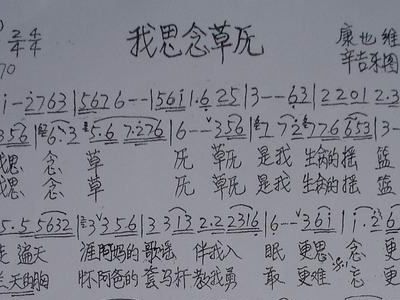 2/4 4/4 我思念草原 康也维
70
i - i 2 7 6 3 | 5 6 7 6 - - | 5 6 i 1 . 6 2 5 | 3 - - 6 3 | 2 2 0 1 2 . 3
3 5 6 | 6 . 3 5 . 6 7 . 2 7 6 | 6 - - 3 5 6 | 7 7 2 7 7 6 6 5 3 | 3 -
我思 念 草 原 草原 是我 生命的摇 篮
我思 念 草 原 草原 是我 生命的摇 篮
5 . 5 5 6 3 2 | 3 3 5 6 | 3 3 1 3 2 . 2 2 3 1 6 | 6 - - 3 6 i | i . 2 6
走 遍天 涯阿妈的 歌谣 伴我入 眠 更思 念 更
兰天的胸 怀阿爸的 套马杆 教我勇 敢 更难 忘 更